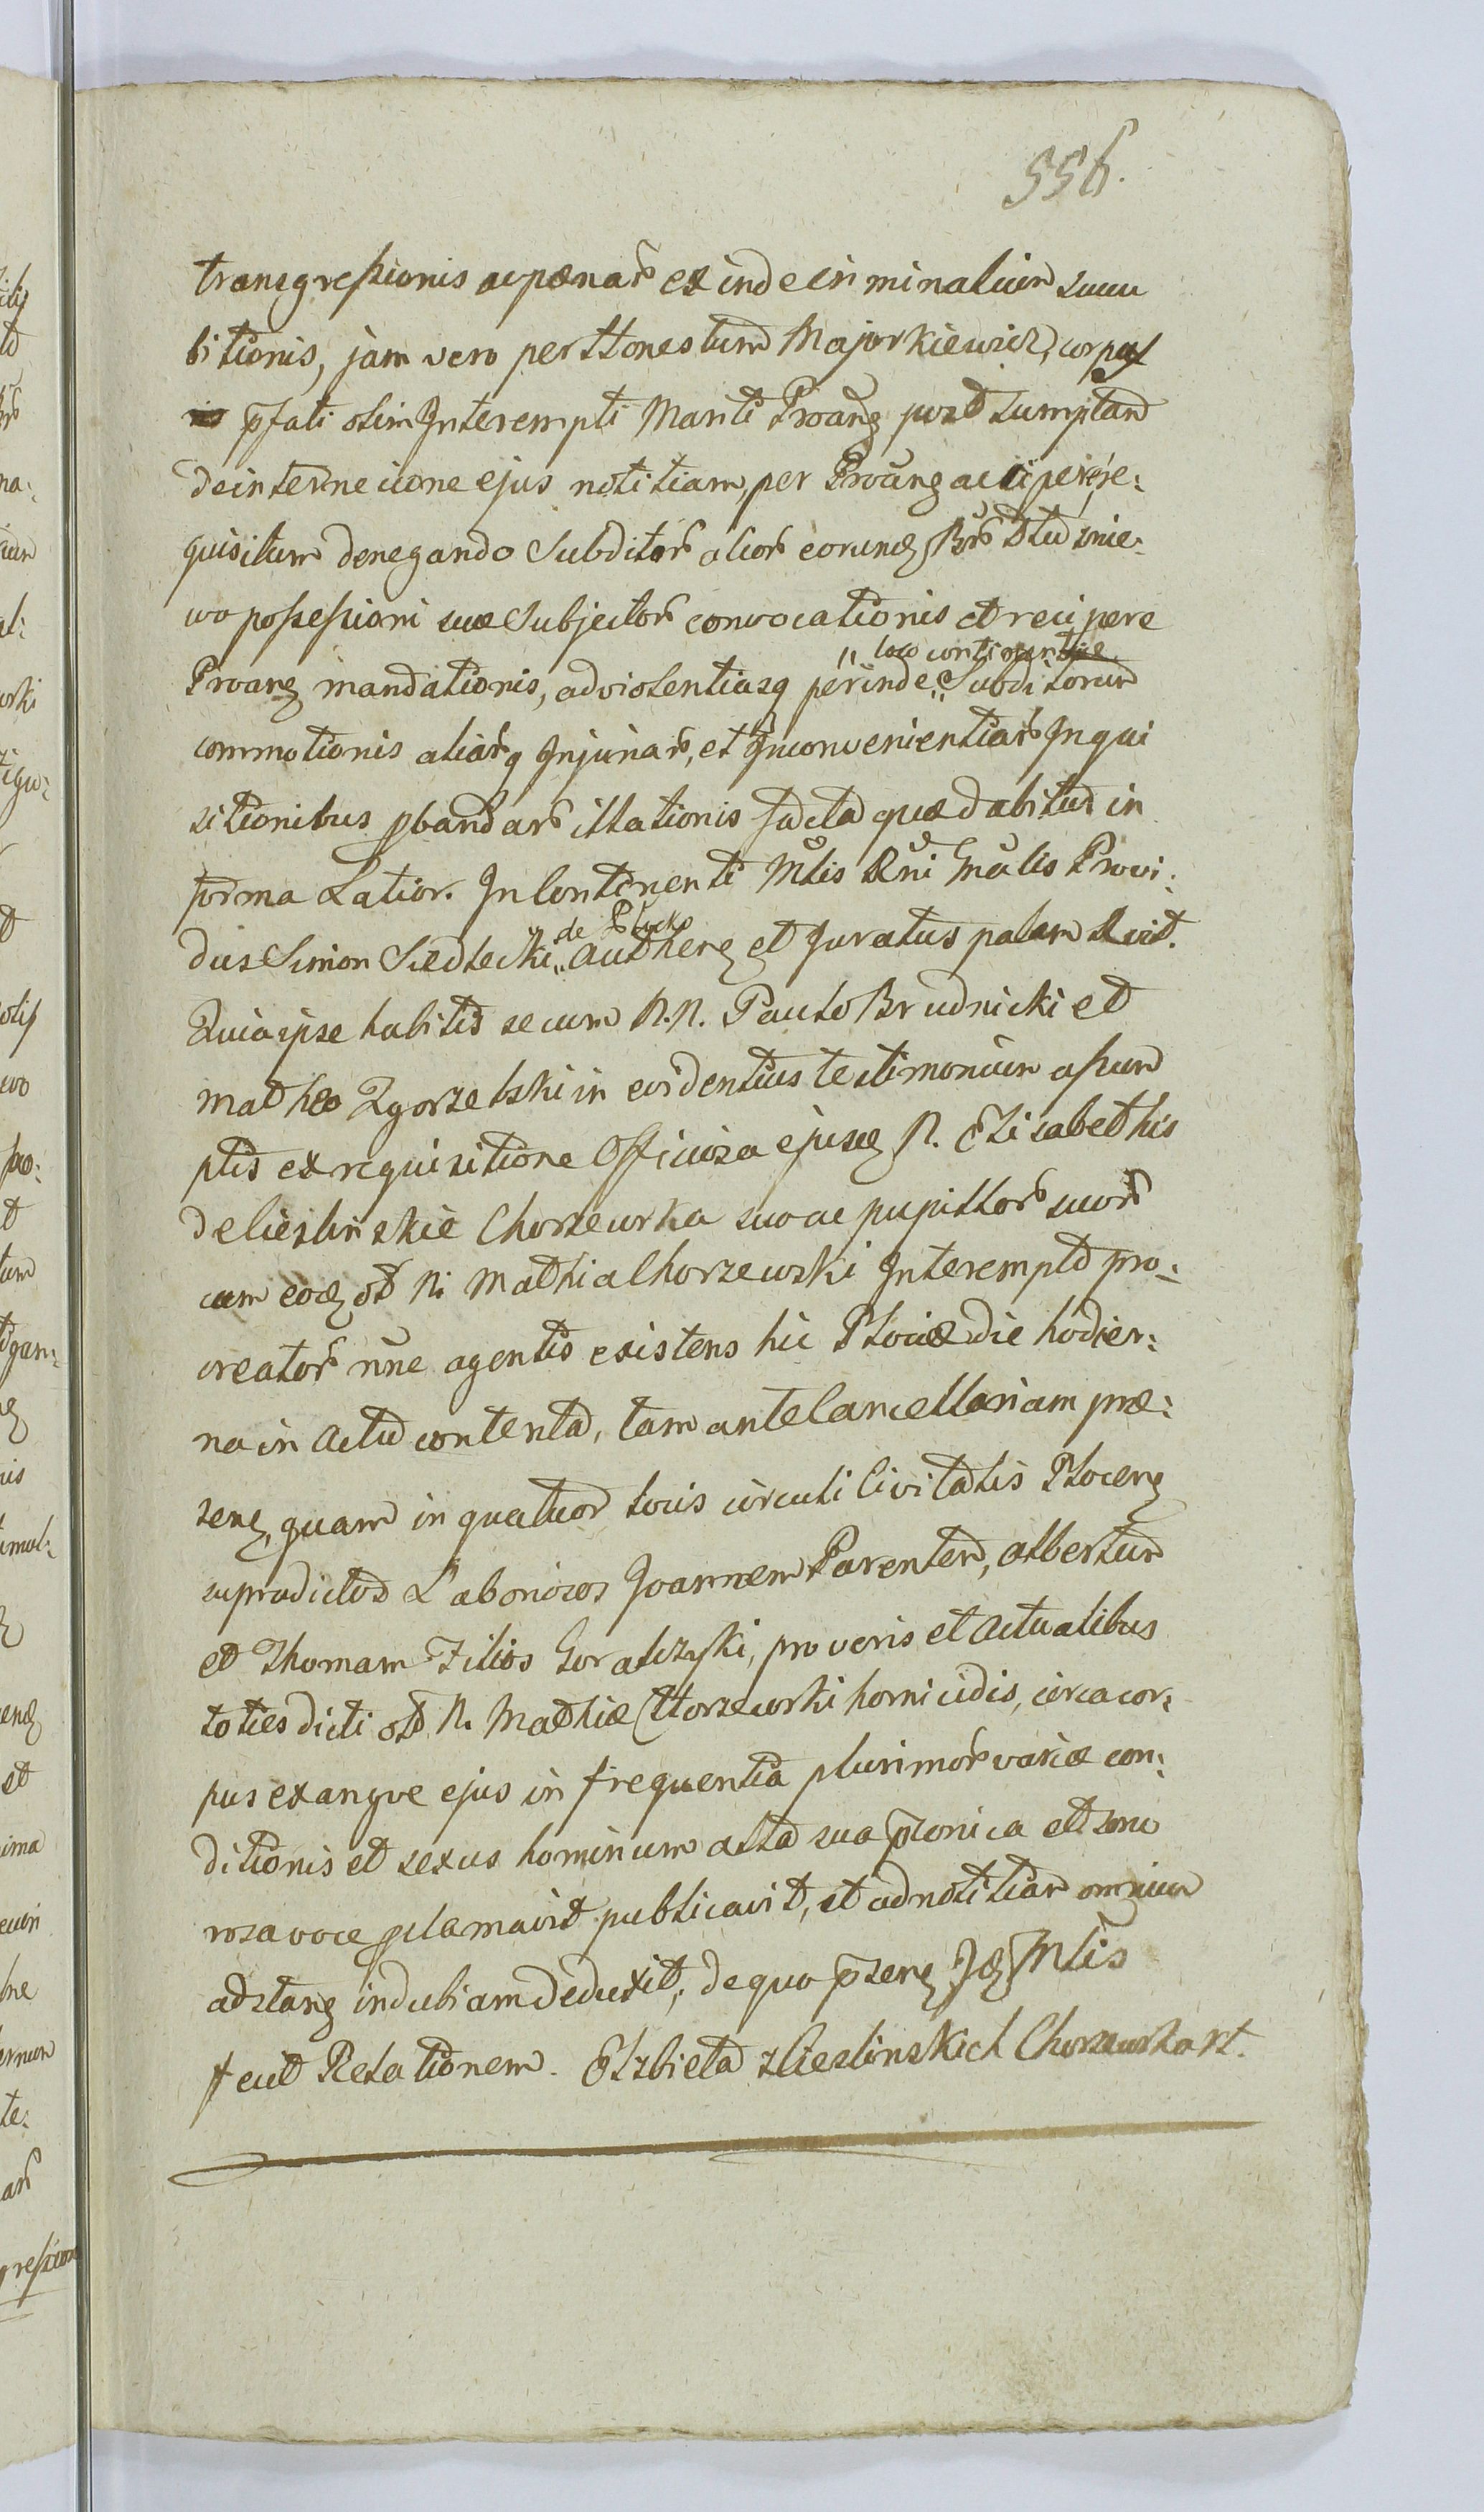 556.
transgressionis ac pænar̃ ex inde criminalium suuu
bitionis, jam vero per Honestum Majorkiewicz, corpus
p̃fati olim Interempti Mariti Proãng post sumptam
de internecione ejus notitiam, per Proãng accipere re:
quisitum denegando Subditor̃ alior̃ eorund Bnr̃ Dłużnie:
wo possessioni suæ Subjector̃ convocationis et recipere
" loco continentiæ
Proang mandationis, ad violentiasq perinde " Subditorum
commotionis aliar̃q Injuriar̃, et Inconvenientiar̃ Inqui
sitionibus pbandar̃ illationis facta quæ dabitur in
forma Latior. In Continenti Mlis Rñi Gnãlis Provi:
de Płock
dus Simon Siedlecki " Auther et Juratus palam R̃cit.
Quia ipse habitis secum N.N. Paulo Brudnicki et
Matheo Zgorzelski in evidentius testimonium assum
ptis ex requisitione Officiosa ejusd N. Elisabethis
de Cieslinskie Chorzewska suo ac pupillor̃ suor̃
cum eod ol N. Mathia Chorzewski Interempto pro:
creator̃ nñe agentis existens hic Plociæ die hodier:
na in Actu contenta, tam ante Cancellariam præ:
sen, quam in quatuor locis circuli Civitatis Plocen
supradictos Laboriosos Joannem Parentem, Albertum
et Thomam Filios Goralczyki, pro veris et actualibus
toties dicti ol N. Mathiæ Chorzewski homicidis, circa cor:
pus exangve ejus in frequentia plurimor̃ variæ con:
ditionis et sexus hominum alta sua p̃conica et sono
rosa voce pclamavit publicavit, et ad notitiam omnium
adstang indubiam deduxit, de quo p̃sens Id Mlis
fecit Relationem. Elzbieta z Cieslinskich Chorzewska rt.